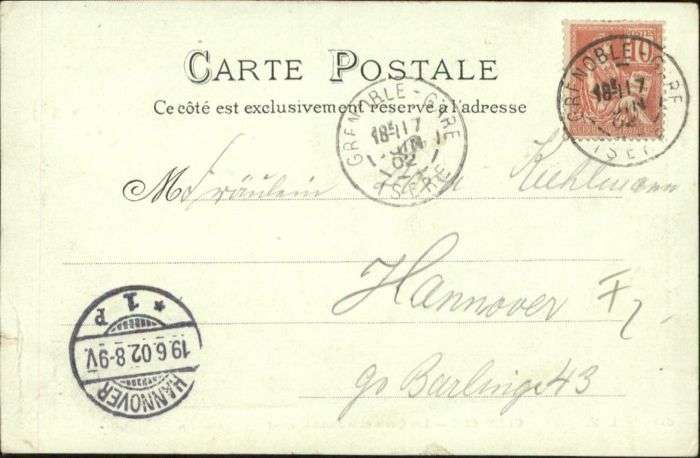 CARTE POSTALE
Ce côté est exclusivement réservé à l'adresse
POSTES
10
GRENOBLE-GARE
18E 17
JUIN
02
ISÈRE
GRENOBLE-GARE
18E 17
ISÈRE
M Fräulein Kuhlmann
Hannover
gr Barlinge 43
HANNOVER
19.6.02.8-9V.
* 1 P